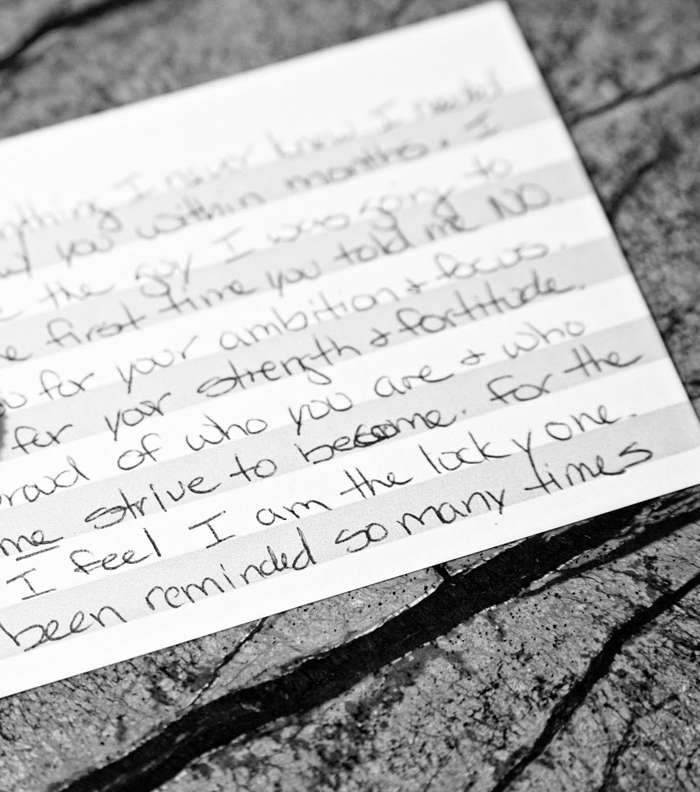 I never knew I needed
you within months. I
the guy I was going to
first time you told me NO.
for your ambition + focus.
for your strength + fortitude.
of who you are + who
me strive to become. For the
I feel I am the lucky one.
been reminded so many times